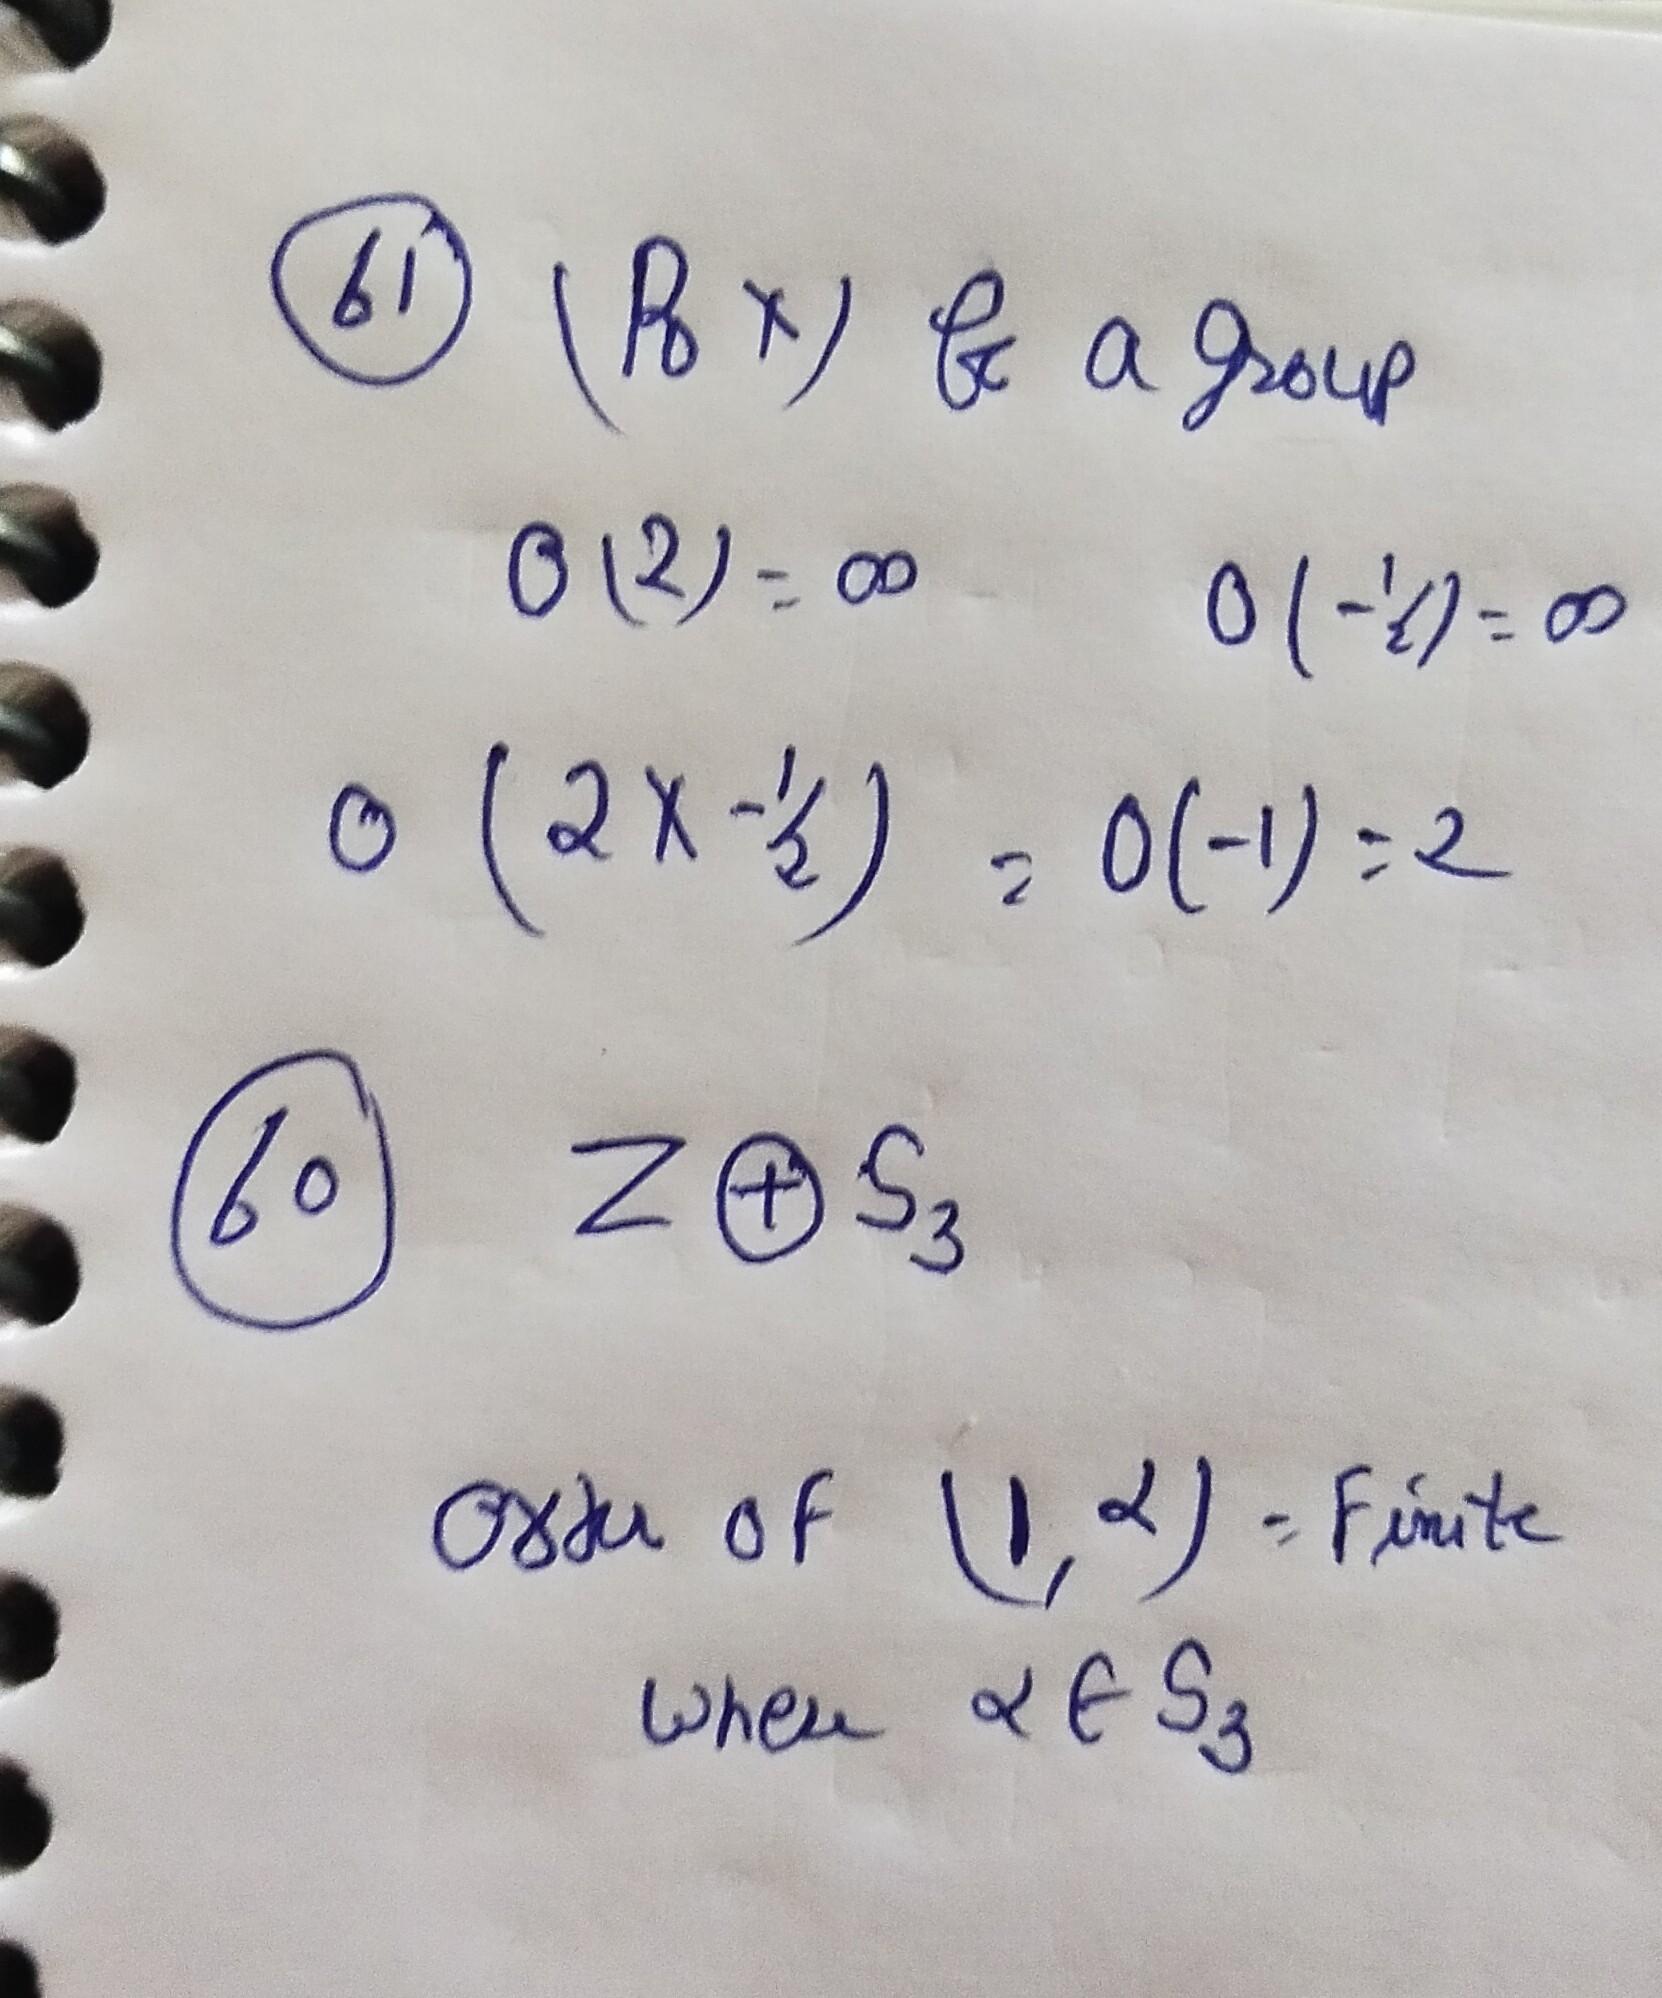 61 (R₀ x) be a group
O(2) = ∞ O(-1/2) = ∞
O (2 x -1/2) = O(-1) = 2
60 Z ⊕ S₃
Order of (1, α) = Finite
where α ∈ S₃